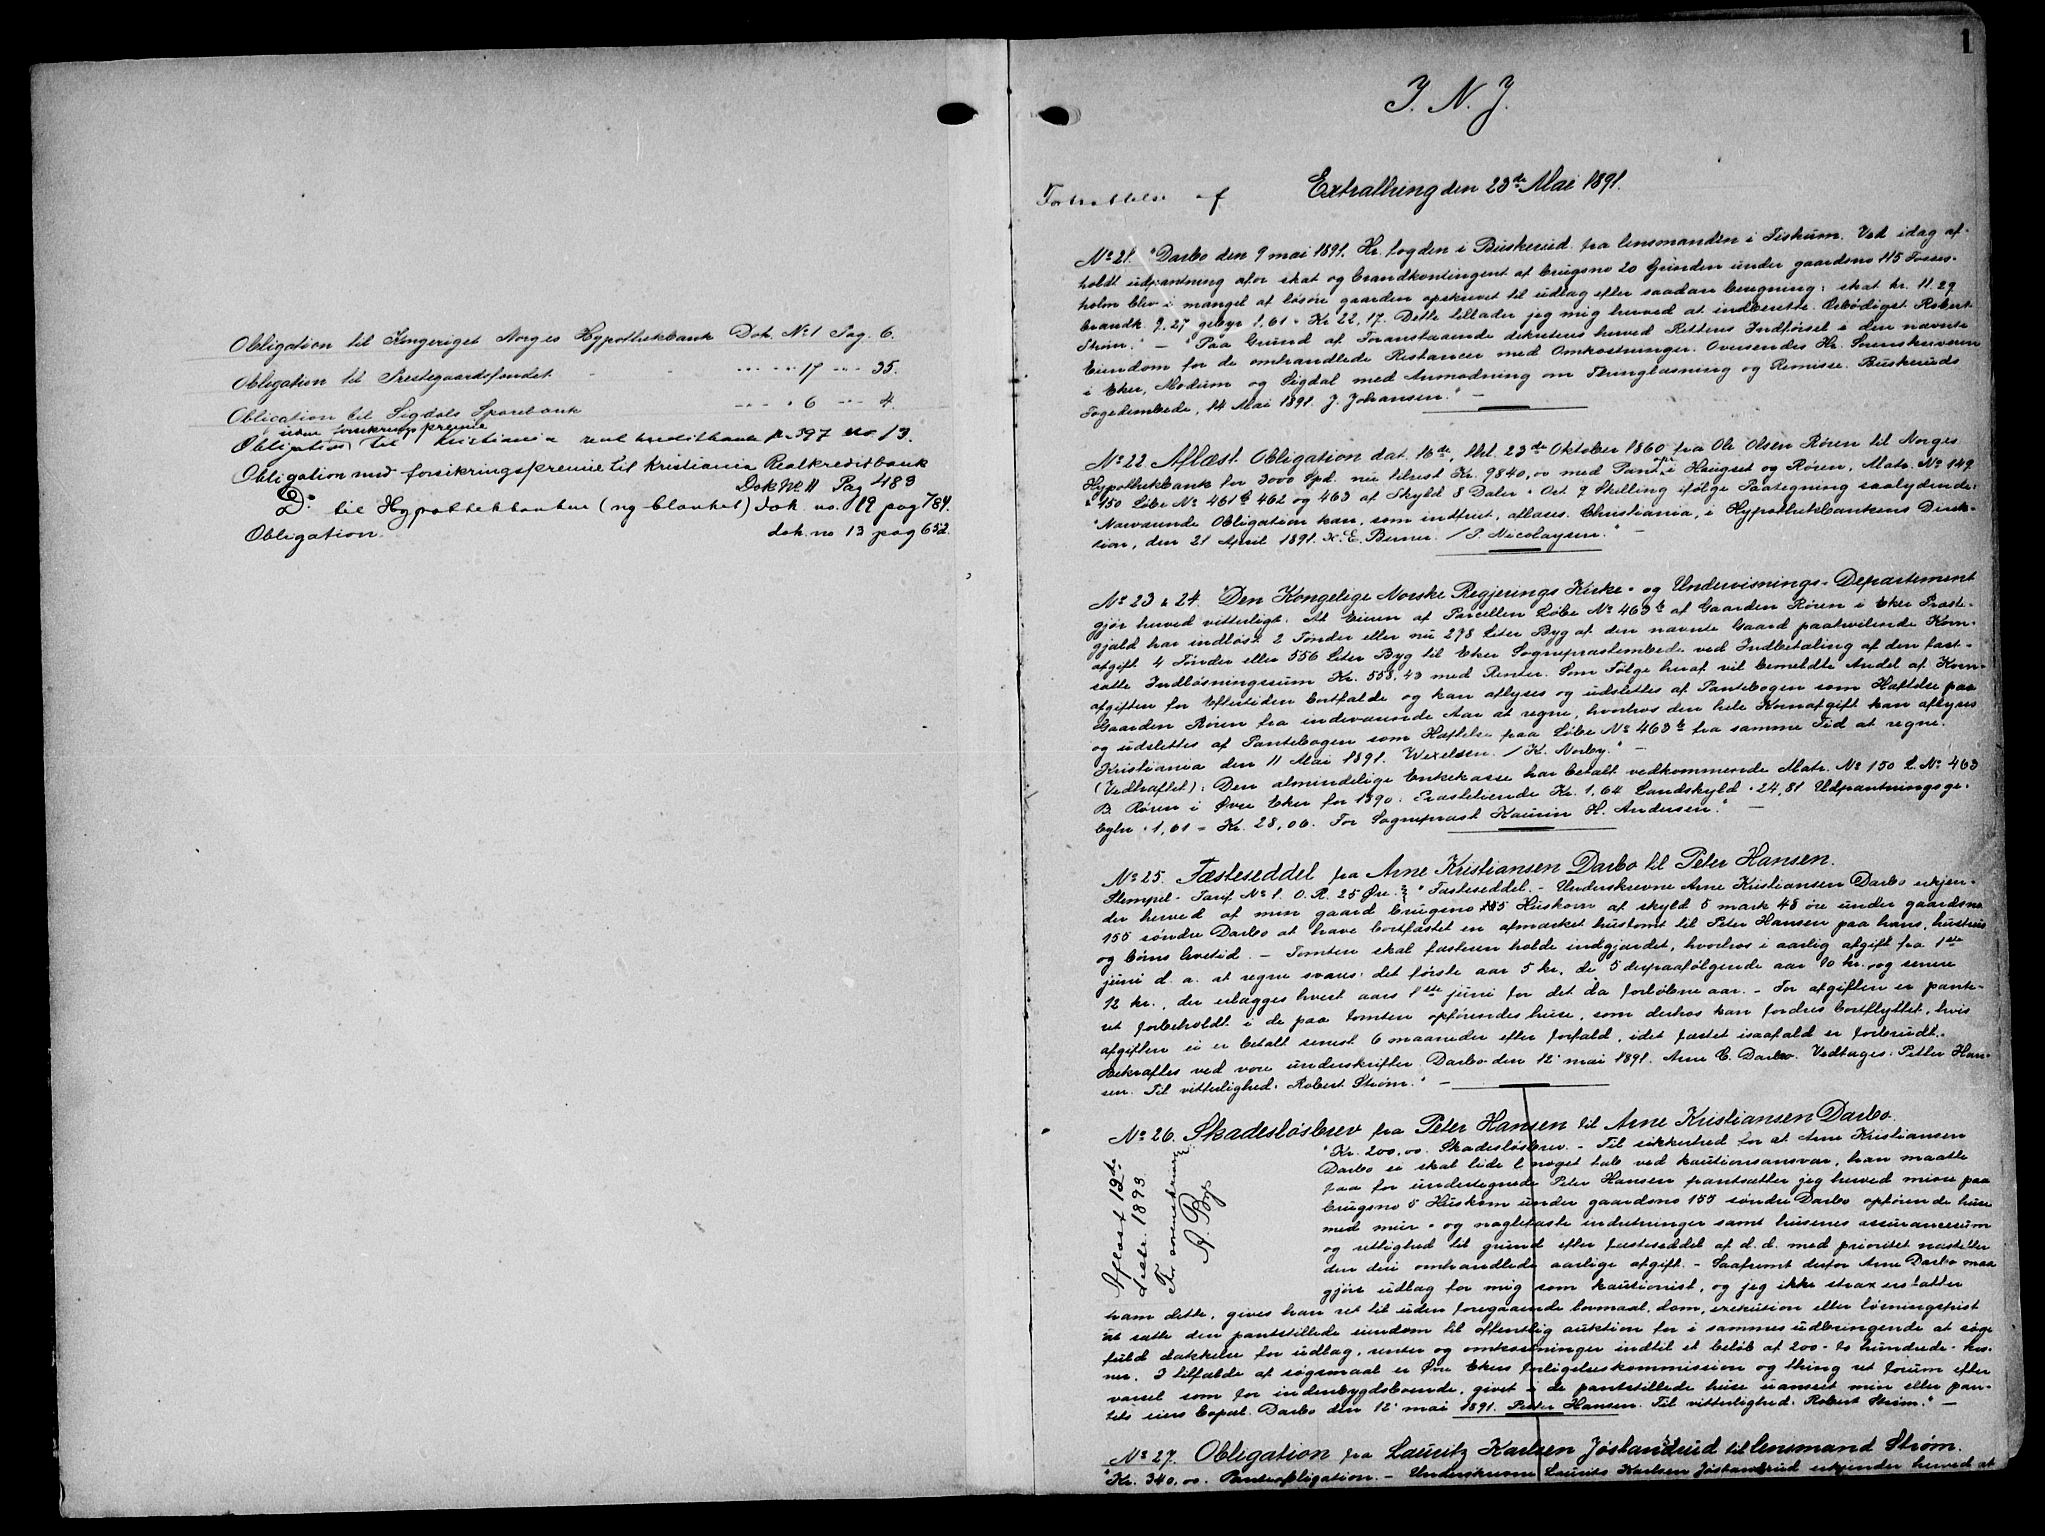 Obligation til Kongeriget Norges Hypothekbank Dok. No 1 Pag. 6.
Obligation til Prestegaardsfondet " " 17 " 35.
Obligation til Sigdals Sparebank " " 6 " 4.
uten forsikringspremie
Obligation til Kristiania realkreditbank p. 597 no. 13.
Obligation med forsikringspremie til Kristiania Realkreditbank
Dok No 11 Pag 483
Do til Hypothekbanken (ny blanket) dok. no. 19 pag 784.
Obligation dok. no 13 pag 652.
1
I. N. J.
Fortsættelse af Extrathing den 23de Mai 1891.
No 21. "Darbo den 9 mai 1891. Hr. fogden i Buskerud fra lensmanden i Fiskum. Ved idag af-
holdt udpantning afor skat og brandkontingent af brugsno 20 Grinden under gaardsno 115 Fosses-
holm blev i mangel af løsøre gaarden opskrevet til udlæg efter saadan beregning: skat kr. 11.29
brandk. 9.27 gebyr 1,61 = Kr 22,17. Dette tillader jeg mig herved at indberette. Ærbødigst Robert
Strøm." — "Paa Grund af Foranstaaende dekreteres herved Rettens Indførsel i den nævnte
Eiendom for de omhandlede Restancer med Omkostninger. Oversendes Hr. Sorenskriveren
i Eker, Modum og Sigdal med Anmodning om Thinglæsning og Remisse. Buskeruds
Fogedembede, 14 Mai 1891. J. Johansen." —
No 22. Aflæst Obligation dat. 16de, thl. 23de Oktober 1860 fra Ole Olsen Røren til Norges
Hypothekbank for 3000 Spd. nu tilrest Kr. 9840,00 med Pant i Haugset og Røren, Matr. No 149
& 150 Løbe No 461b 462 og 463 af Skyld 8 Daler " Ort 9 Skilling ifølge Paategning saalydende:
"Nærværende Obligation kan, som indfriet, aflæses. Christiania, i Hypothekbankens Direk-
tion, den 21 April 1891. H. E. Berner. / P. Nicolaysen." —
No 23 & 24. "Den Kongelige Norske Regjerings Kirke- og Undervisnings-Departement
gjør herved vitterligt: At Eieren af Parcellen Løbe No 463b af Gaarden Røren i Eker Præste-
gjæld har indløst 2 Tønder eller nu 278 Liter Byg af den nævnte Gaard paahvilende Korn-
afgift 4 Tønder eller 556 Liter Byg til Eker Sognepræstembede ved Indbetaling af den fast-
satte Indløsningssum Kr. 558,43 med Renter. Som Følge heraf vil bemeldte Andel af Korn-
afgiften for Eftertiden bortfalde og kan aflyses og udslettes af Pantebogen som Hæftelse paa
Gaarden Røren fra indeværende Aar at regne, hvorhos den hele Kornafgift kan aflyses
og udslettes af Pantebogen som Hæftelse paa Løbe No 463b fra samme Tid at regne.
Kristiania den 11 Mai 1891. Wexelsen. / K. Norby." —
(Vedhæftet): Den almindelige Enkekasse har betalt vedkommende Matr. No 150 L. No 463
B. Røren i Øvre Eker for 1890: Præstetiende Kr. 1,64 Landskyld " 24,81 Udpantningsge-
bybr " 1,61 = Kr. 28,06. For Sognepræst Kaurin H. Andersen." —
No 25. Fæsteseddel fra Arne Kristiansen Darbo til Peter Hansen.
Stempel-Tarif No 1. O. R. 25 Øre. "Fæsteseddel. — Underskrevne Arne Kristiansen Darbo erkjen-
der herved af min gaard brugsno 5 Huskom af skyld 5 mark 48 øre under gaardsno
155 søndre Darbo at have bortfæstet en afmærket hustomt til Peter Hansen paa hans, hustrus
og børns levetid. — Tomten skal fæsteren holde indgjærdet, hvorhos i aarlig afgift fra 1ste
juni d. a. at regne svares: det første aar 5 kr., de 5 derpaafølgende aar 10 kr. og senere
12 kr., der erlægges hvert aars 1ste juni for det da forløbne aar. — For afgiften er pante-
ret forbeholdt i de paa tomten opførendes huse, som derhos kan fordres bortflyttet, hvis
afgiften ei er betalt senest 6 maaneder efter forfald, idet fæstet isaafald er forbrudt.
Bekræftes ved vore underskrifter. Darbo den 12' mai 1891. Arne C. Darbo. Vedtages: Petter Han-
sen. Til vitterlighed: Robert Strøm." —
No 26. Skadesløsbrev fra Peter Hansen til Arne Kristiansen Darbo.
Aflæst 12de
Septr. 1893.
For sorenskriveren
A. Bys
"Kr. 200,00. Skadesløsbrev. — Til sikkerhed for at Arne Kristiansen
Darbo ei skal lide noget tab ved kautionsansvar, han maatte
paa for undertegnede Peter Hansen pantsætter jeg herved mine paa
brugsno 5 Huskom under gaardsno 155 søndre Darbo opførende huse
med mur- og naglefaste indretninger samt husenes assurancesum
og rettighed til grund efter fæsteseddel af d. d. med prioritet næstefter
den deri omhandlede aarlige afgift. — Saafremt derfor Arne Darbo maa
gjøre udlæg for mig som kautionist, og jeg ikke strax erstatter
ham dette, gives han ret til uden foregaaende lovmaal, dom, exekution eller løsningsfrist
at sætte den pantstillede eiendom til offentlig auktion for i sammes udbringende at søge
fuld dækkelse for udlæg, renter og omkostninger indtil et beløb af 200 - to hundrede - kro-
ner. I tilfælde af søgsmaal er Øvre Ekers forligelseskommission og thing ret forum efter
varsel som for indenbygdsboende, givet i de pantstillede huse uanset min eller pan-
tets eiers bopæl. Darbo den 12' mai 1891. Petter Hansen. Til vitterlighed: Robert Strøm." —
No 27. Obligation fra Lauritz Karlsen Jøstandrud til lensmand Strøm.
"Kr. 340,00. Panteobligation. — Underskrevne Laurits Karlsen Jøstandrud erkjender herved at